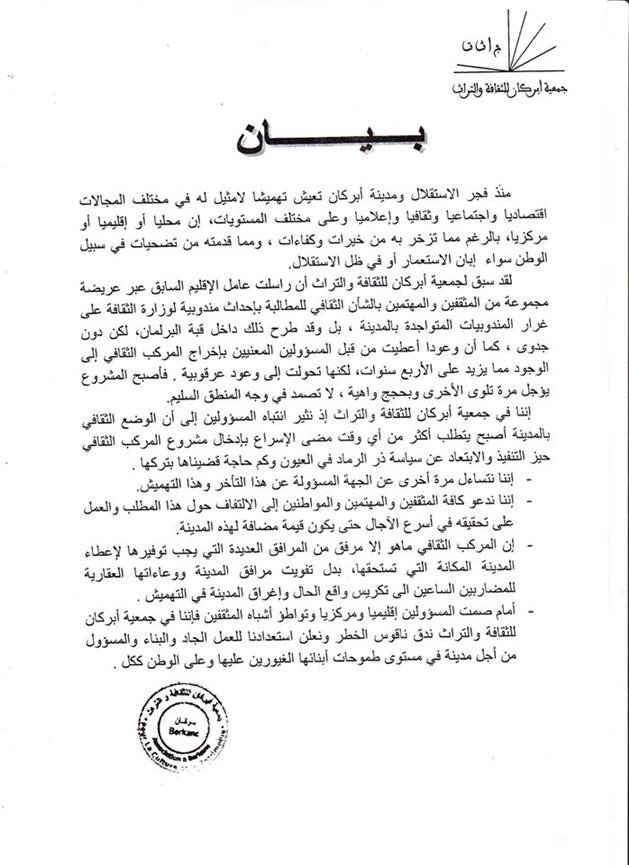 ج ا ث ت
جمعية أبركان للثقافة والتراث
بـيـــان
منذ فجر الاستقلال ومدينة أبركان تعيش تهميشا لامثيل له في مختلف المجالات
اقتصاديا واجتماعيا وثقافيا وإعلاميا وعلى مختلف المستويات، إن محليا أو إقليميا أو
مركزيا، بالرغم مما تزخر به من خيرات وكفاءات ، ومما قدمته من تضحيات في سبيل
الوطن سواء إبان الاستعمار أو في ظل الاستقلال.
لقد سبق لجمعية أبركان للثقافة والتراث أن راسلت عامل الإقليم السابق عبر عريضة
مجموعة من المثقفين والمهتمين بالشأن الثقافي للمطالبة بإحداث مندوبية لوزارة الثقافة على
غرار المندوبيات المتواجدة بالمدينة ، بل وقد طرح ذلك داخل قبة البرلمان، لكن دون
جدوى ، كما أن وعودا أعطيت من قبل المسؤولين المعنيين بإخراج المركب الثقافي إلى
الوجود مما يزيد على الأربع سنوات، لكنها تحولت إلى وعود عرقوبية . فأصبح المشروع
يؤجل مرة تلوى الأخرى وبحجج واهية ، لا تصمد في وجه المنطق السليم.
إننا في جمعية أبركان للثقافة والتراث إذ نثير انتباه المسؤولين إلى أن الوضع الثقافي
بالمدينة أصبح يتطلب أكثر من أي وقت مضى الإسراع بإدخال مشروع المركب الثقافي
حيز التنفيذ والابتعاد عن سياسة ذر الرماد في العيون وكم حاجة قضيناها بتركها .
- إننا نتساءل مرة أخرى عن الجهة المسؤولة عن هذا التأخر وهذا التهميش.
- إننا ندعو كافة المثقفين والمهتمين والمواطنين إلى الالتفاف حول هذا المطلب والعمل
على تحقيقه في أسرع الآجال حتى يكون قيمة مضافة لهذه المدينة.
- إن المركب الثقافي ماهو إلا مرفق من المرافق العديدة التي يجب توفيرها لإعطاء
المدينة المكانة التي تستحقها، بدل تفويت مرافق المدينة ووعاءاتها العقارية
للمضاربين الساعين الى تكريس واقع الحال وإغراق المدينة في التهميش .
- أمام صمت المسؤولين إقليميا ومركزيا وتواطؤ أشباه المثقفين فإننا في جمعية أبركان
للثقافة والتراث ندق ناقوس الخطر ونعلن استعدادنا للعمل الجاد والبناء والمسؤول
من أجل مدينة في مستوى طموحات أبنائها الغيورين عليها وعلى الوطن ككل .
جمعية أبركان للثقافة و التراث
بركان
Berkane